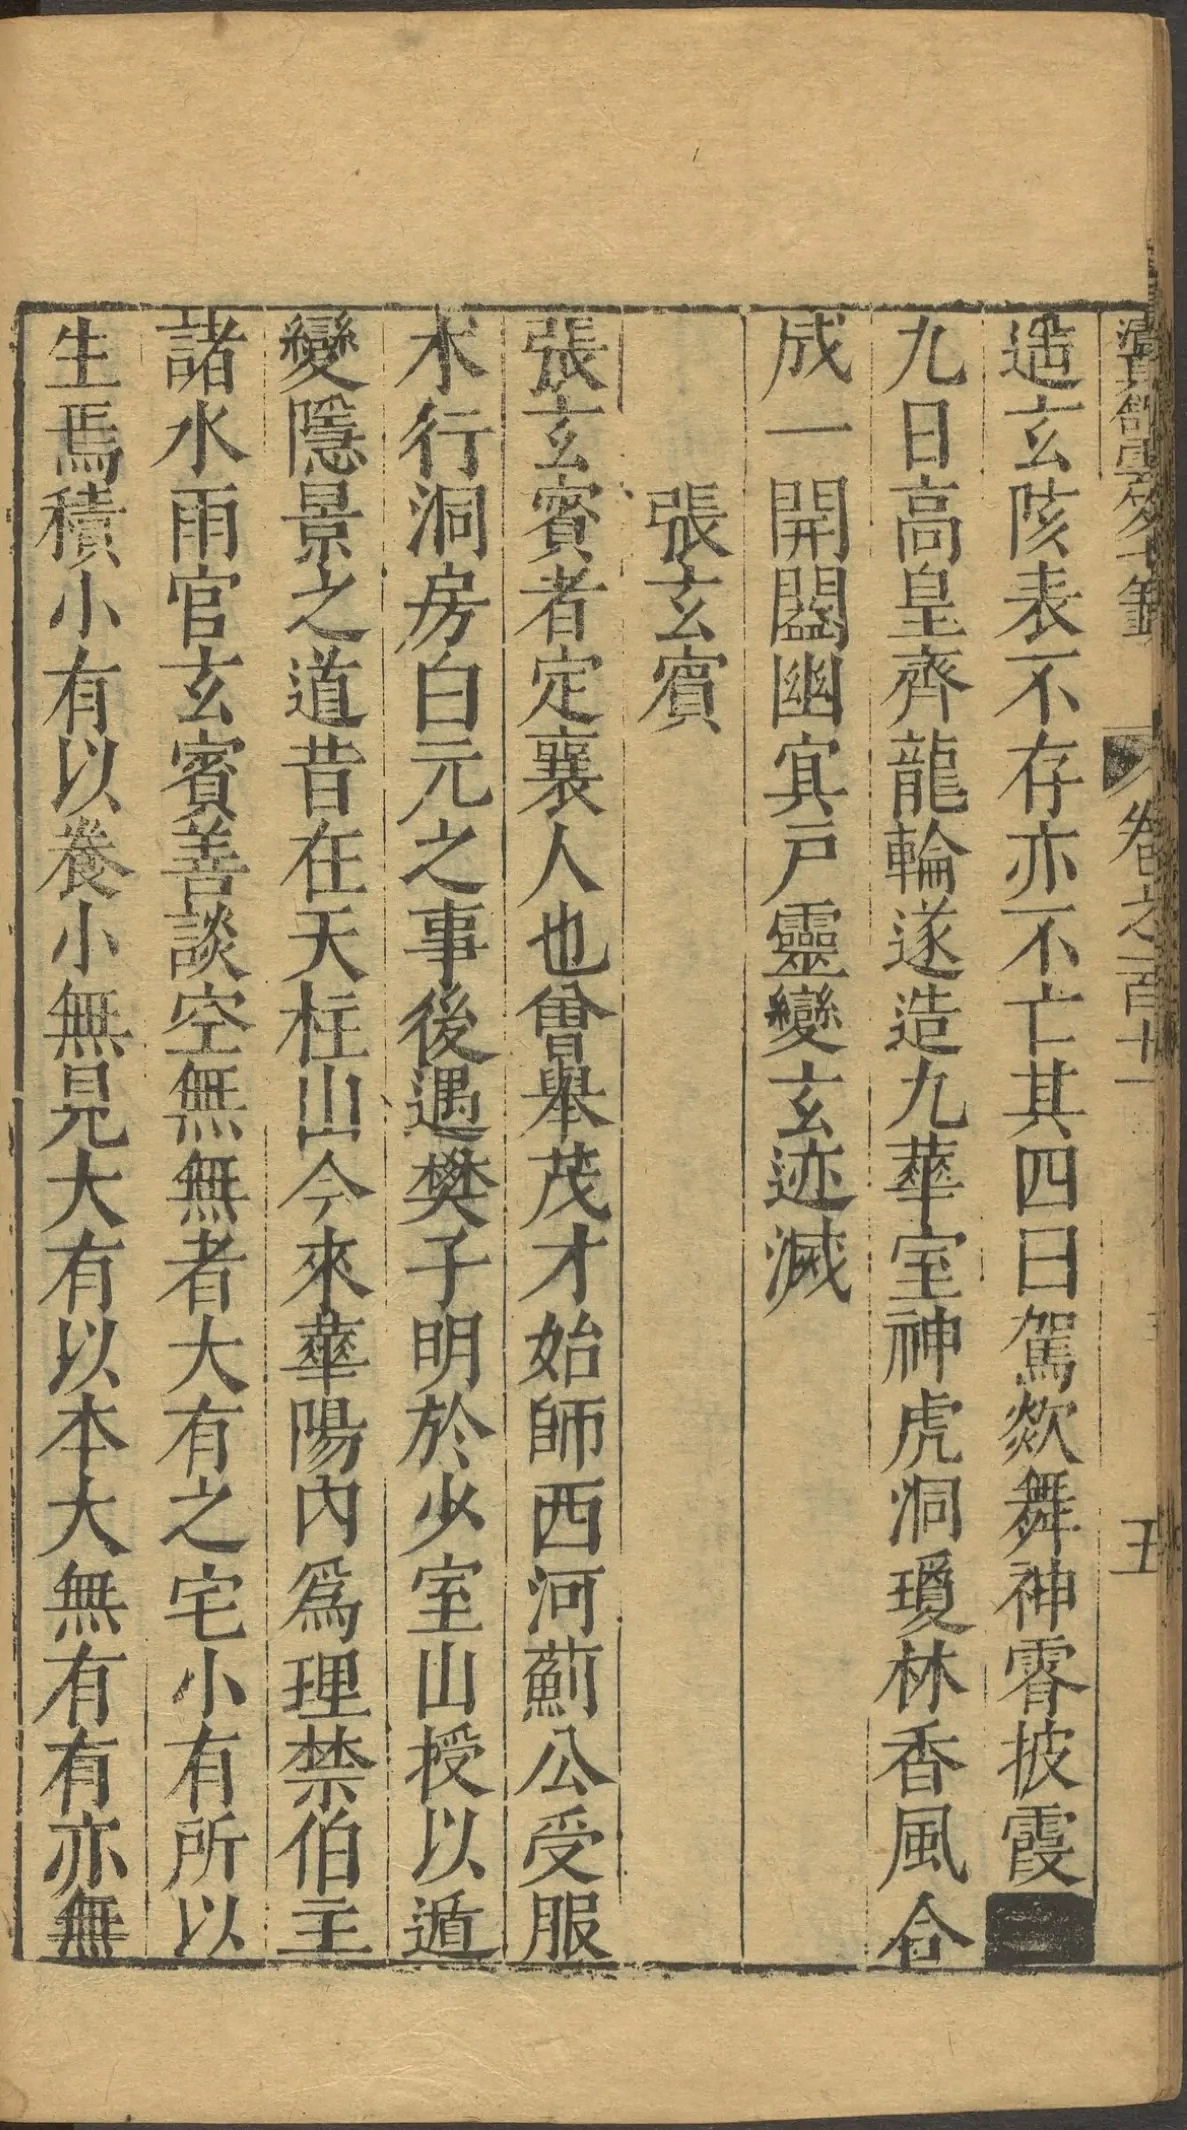 卷之一百十一
五
造玄陔表不存亦不亡其四曰駕欻舞神霄披霞
九日高皇齊龍輪遂造九華室神虎洞瓊林香風合
成一開闔幽冥戶靈變玄迹滅
張玄賓
張玄賓者定襄人也曾舉茂才始師西河薊公受服
木行洞房白元之事後遇樊子明於少室山授以遁
變隱景之道昔在天柱山今來華陽內爲理禁伯主
諸水雨官玄賓善談空無無者大有之宅小有所以
生焉積小有以養小無見大有以本大無有有亦無